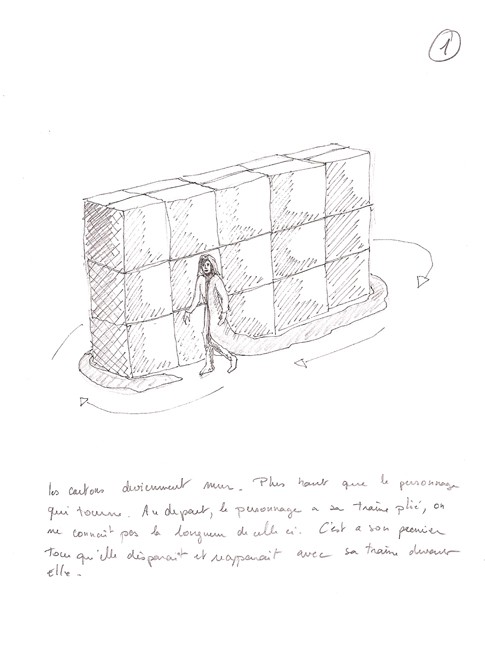 1
les cartons deviennent mur. Plus haut que le personnage
qui tourne. Au depart, le personnage a sa traîne plié, on
ne connait pas la longueur de celle ci. C'est a son premier
tour qu'elle disparait et reapparait avec sa traîne devant
elle.